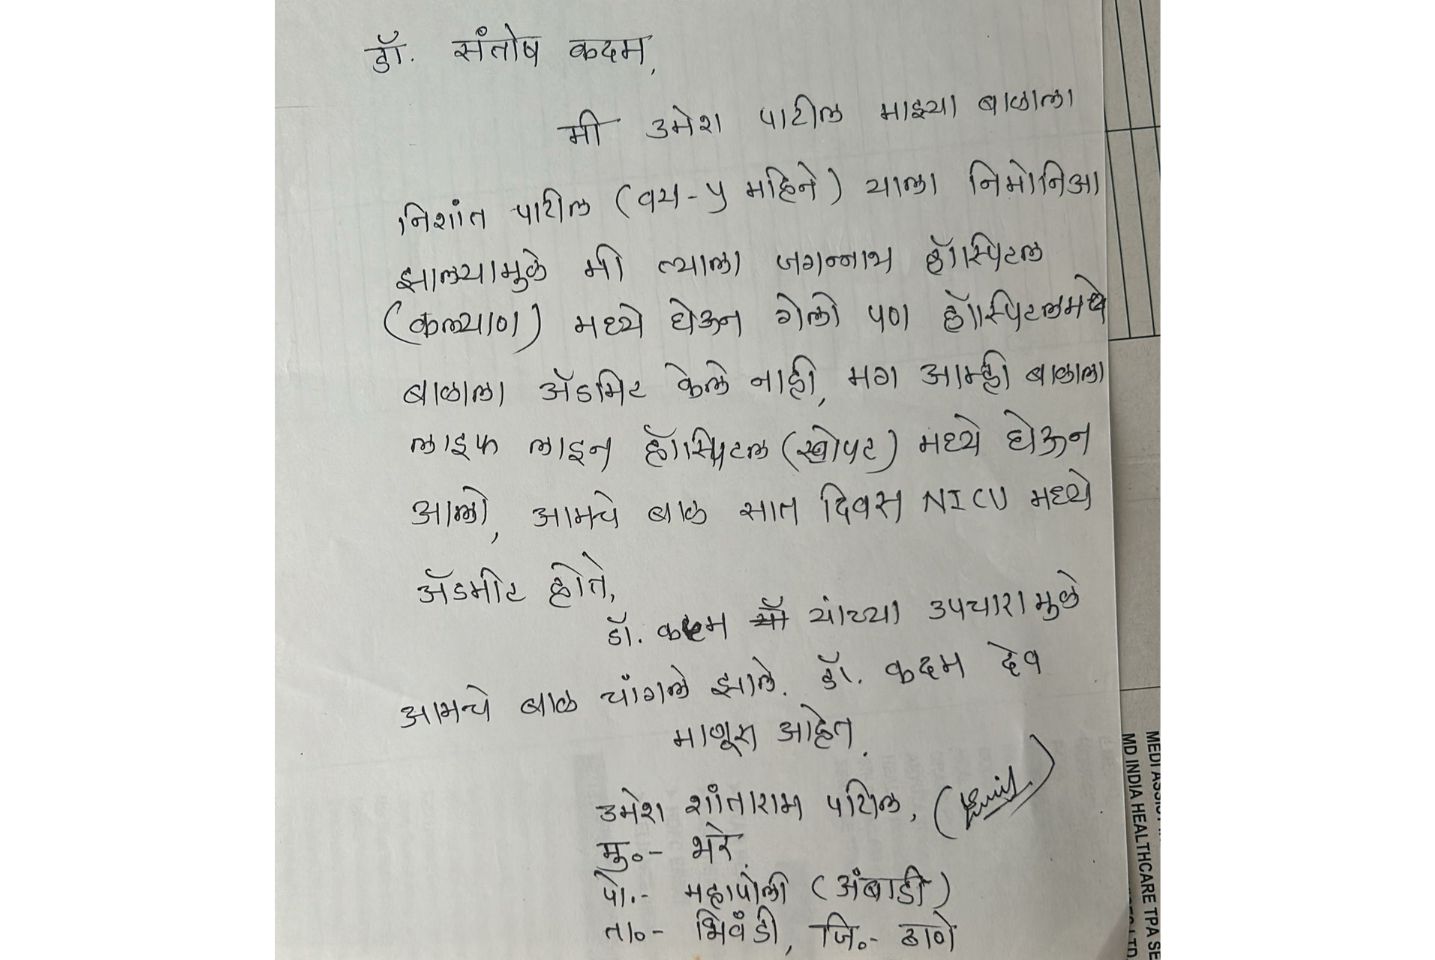 डॉ. संतोष कदम,
मी उमेश पाटील माझ्या बाळाला
निशांत पाटील (वय-५ महिने) याला निमोनिआ
झाल्यामुळे मी त्याला जगन्नाथ हॉस्पिटल
(कल्याण) मध्ये घेऊन गेलो पण हॉस्पिटलमध्ये
बाळाला ॲडमिट केले नाही, मग आम्ही बाळाला
लाइफ लाइन हॉस्पिटल (खोपट) मध्ये घेऊन
आलो, आमचे बाळ सात दिवस NICU मध्ये
ॲडमीट होते,
डॉ. कदम यांच्या उपचारामुळे
आमचे बाळ चांगले झाले. डॉ. कदम देव
माणूस आहेत.
उमेश शांताराम पाटील,
मु०- भरे.
पो.- महापोली (अंबाडी)
ता०- भिवंडी, जि०- ठाणे
MD INDIA HEALTHCARE TPA SE